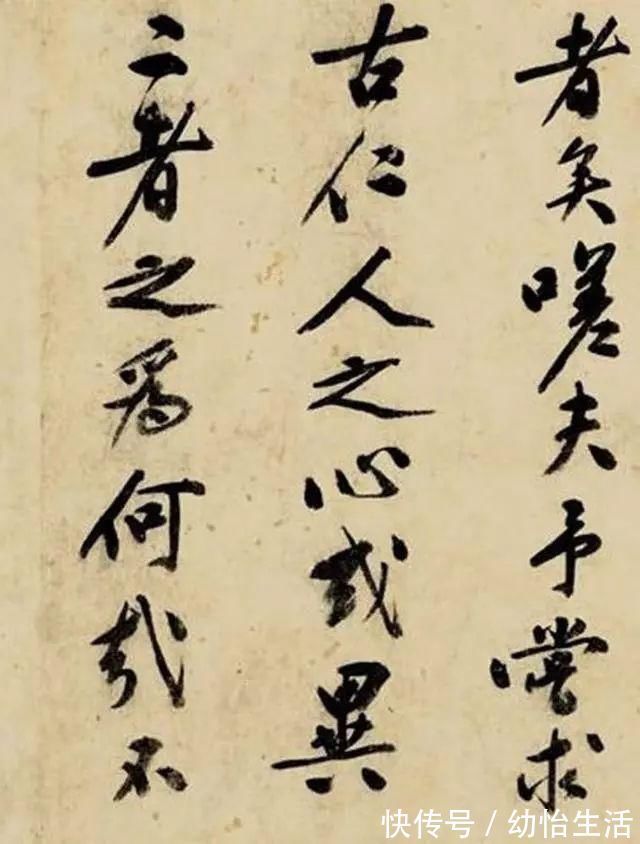 者矣嗟夫予嘗求
古仁人之心或異
二者之為何哉不
快传号/幼怡生活